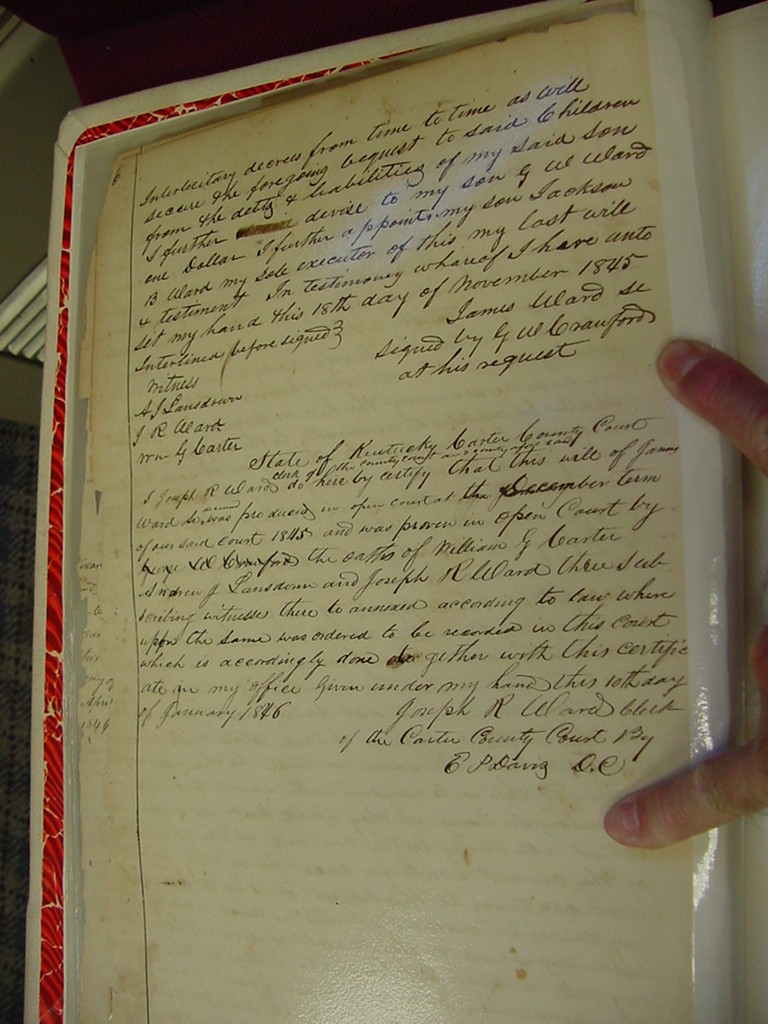 6
Interlocitary decrees from time to time as will
secure the foregoing bequest to said Children
from the debts & leabilities of my said Son
I further devise to my son G W Ward
one Dollar I further appoint my son Jackson
B Ward my Sole executor of this my last will
& testiment In testimoney whareof I have unto
set my hand this 18th day of November 1845
Interlined before signed} James Ward Se
Witness signed by G W Crawford
A J Lansdown at his request
J R Ward
Wm G Carter
State of Kentucky Carter County Court
clerk of the county court and county afor said
I Joseph R Ward do here by certify that this will of James
Ward Se was produced in open court at the December term
of our said court 1845 and was proven in open Court by
George W Crawford the oaths of William G Carter
Andrew J Lansdown and Joseph R Ward three Sub
scribing witnesses there to annexed according to law where
upon the same was ordered to be recorded in this Court
which is accordingly done gether with this certific
ate in my office Given under my hand this 10th day
of January 1846 Joseph R Ward Clerk
of the Carter County Court By
E P Davis D.C
April
1846